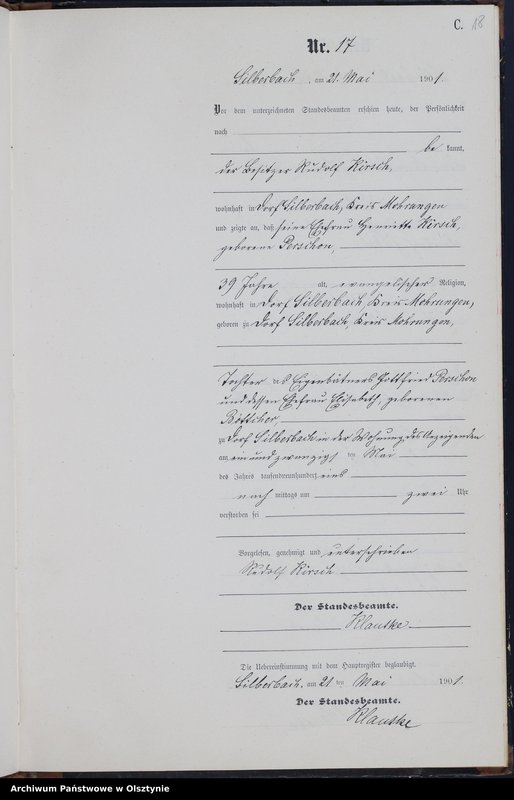 C. 18
Nr. 17
Silberbach, am 21. Mai 1901.
Vor dem unterzeichneten Standesbeamten erschien heute, der Persönlichkeit
nach
be kannt,
der Besitzer Rudolf Kirsch,
wohnhaft in Dorf Silberbach, Kreis Mohrungen
und zeigte an, daß seine Ehefrau Henriette Kirsch,
geborene Perschon,
39 Jahre alt, evangelischer Religion,
wohnhaft in Dorf Silberbach, Kreis Mohrungen,
geboren zu Dorf Silberbach, Kreis Mohrungen,
Tochter des Eigenkätners Gottfried Perschon
und dessen Ehefrau Elisabeth, geborenen
Böttcher,
zu Dorf Silberbach in der Wohnung des Anzeigenden
am ein und zwanzigsten Mai
des Jahres tausendneunhundert eins
nach mittags um zwei Uhr
verstorben sei
Vorgelesen, genehmigt und unterschrieben
Rudolf Kirsch
Der Standesbeamte.
Klautke.
Die Uebereinstimmung mit dem Hauptregister beglaubigt.
Silberbach, am 21 ten Mai 1901.
Der Standesbeamte.
Klautke
Archiwum Państwowe w Olsztynie